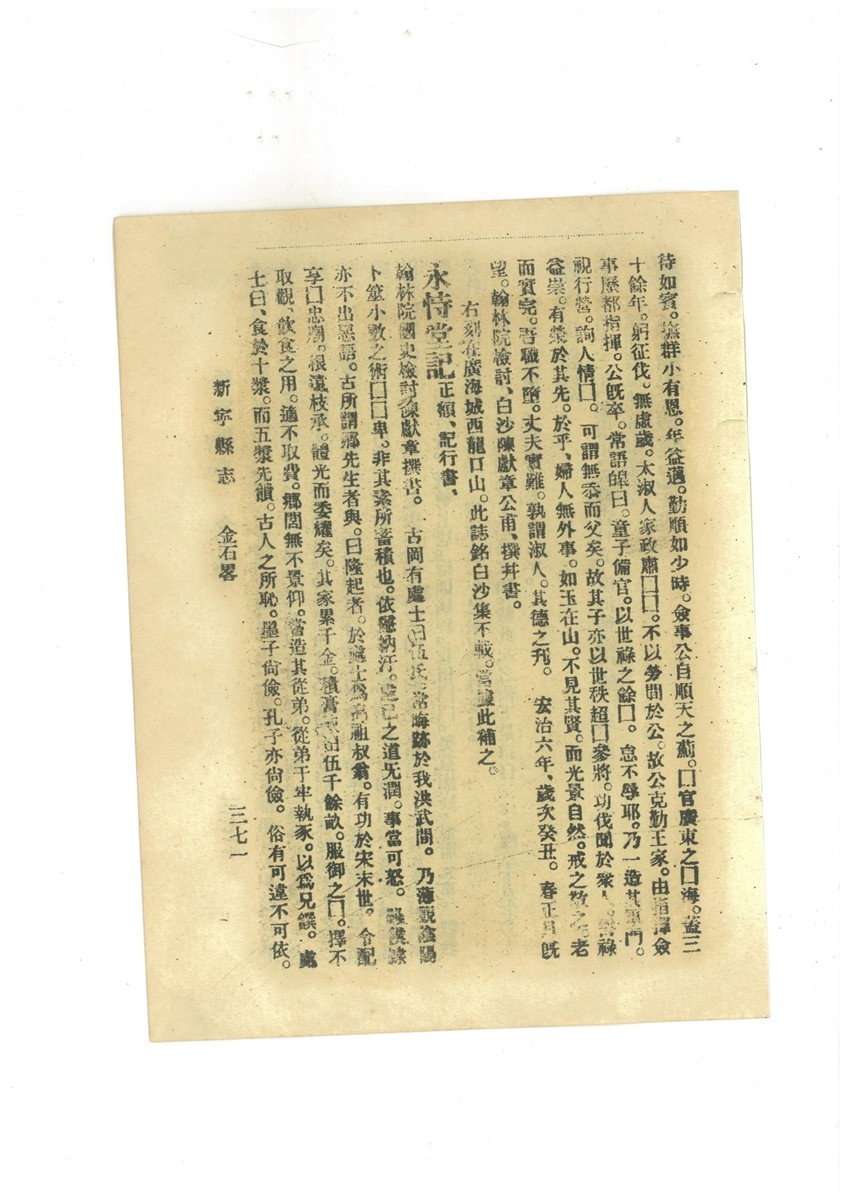 待如賓。撫群小有恩。年益邁。勤順如少時。僉事公自順天之薊。囗官廣東之囗海。蓋三
十餘年。躬征伐。無虛歲。太淑人家政肅囗囗。不以勞間於公。故公克勤王家。由指揮僉
事歷都指揮。公既卒。常語皞曰。童子備官。以世祿之餘囗。怠不學耶。乃一造其軍門。
視行營。詢人情囗。可謂無忝而父矣。故其子亦以世秩超囗參將。功伐聞於衆人。祿
益崇。有榮於其先。於乎、婦人無外事。如玉在山。不見其賢。而光景自然。戒之敬之。老
而實完。吾職不墮。丈夫實難。孰謂淑人。其德之刊。 宏治六年、歲次癸丑。春正月既
望。翰林院檢討、白沙陳獻章公甫、撰幷書。
右刻在廣海城西龍口山。此誌銘白沙集不載。當據此補之。
永恃堂記正額、記行書、
翰林院國史檢討陳獻章撰書。 古岡有處士曰伍氏。常晦跡於我洪武間。乃薄觀陰陽
卜筮小數之術囗囗卑。非其素所蓄積也。依隱納汙。處己之道旡潤。事當可怒。雖僕隸
亦不出惡語。古所謂鄉先生者與。曰隆起者。於處士爲高祖叔翁。有功於宋末世。令配
享囗忠廟。根遠枝承。體光而委耀矣。其家累千金。積膏伍千餘畝。服御之囗。擇不
取觀、飲食之用。適不取費。鄉閭無不景仰。嘗造其從弟。從弟于牢執豕。以爲兄饌。處
士曰、食於十漿。而五漿先饋。古人之所恥。墨子尙儉。孔子亦尙儉。 俗有可違不可依。
新寧縣志 金石畧 三七一